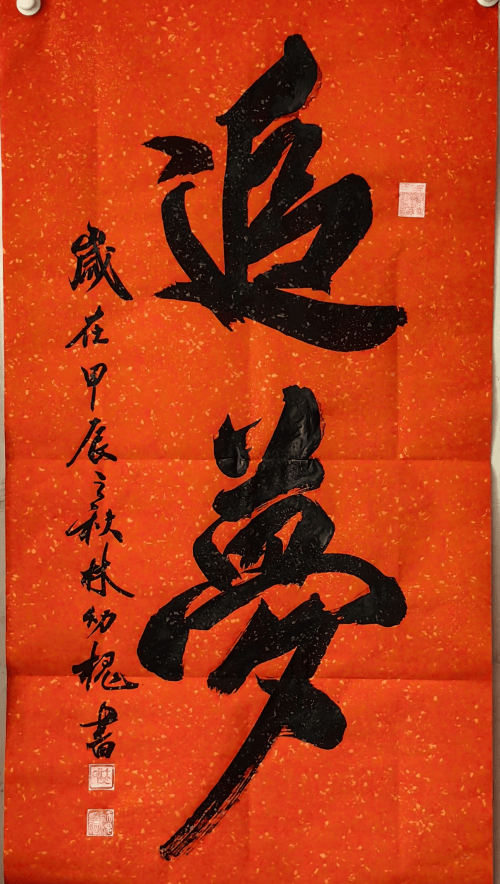 追夢
歲在甲辰之秋林幼槐書